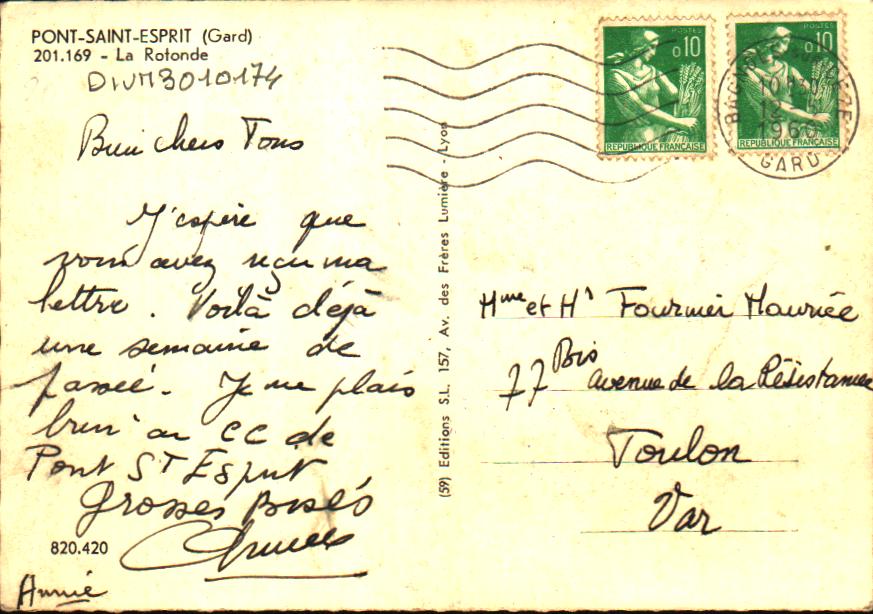 PONT-SAINT-ESPRIT (Gard)
201.169 - La Rotonde
DIVM3010174
Bien chers Tous
J'espère que
vous avez reçu ma
lettre. Voilà déjà
une semaine de
passée. Je me plais
bien au CC de
Pont St Esprit
Grosses Bisés
820.420
Annie
(59) Editions S.L. 157, Av. des Frères Lumière - Lyon
POSTES
0,10
REPUBLIQUE FRANÇAISE
POSTES
0,10
REPUBLIQUE FRANÇAISE
GARD
Mme et Mr Fournier Maurice
77 Bis avenue de la Résistance
Toulon
Var